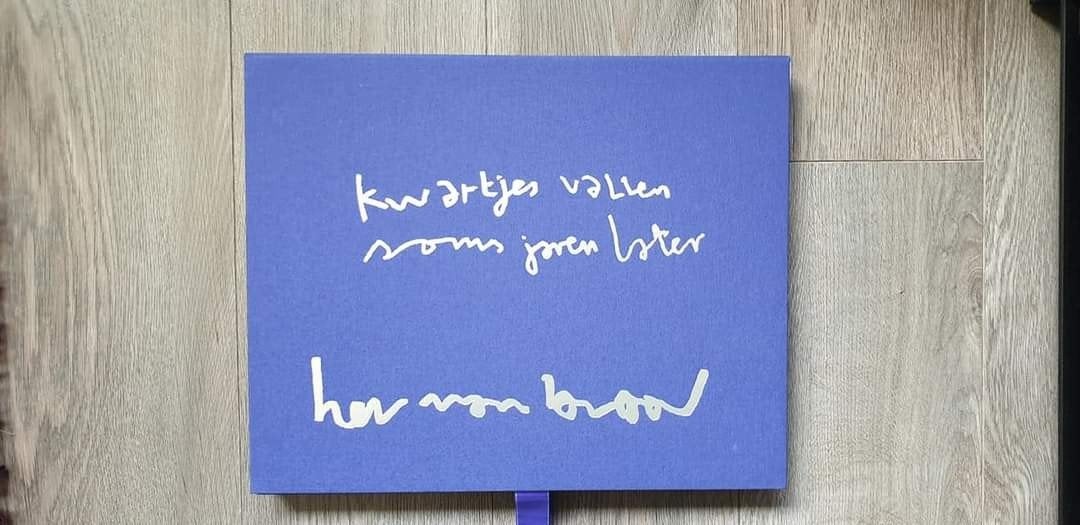 kwartjes vallen
soms jaren later
herman brood